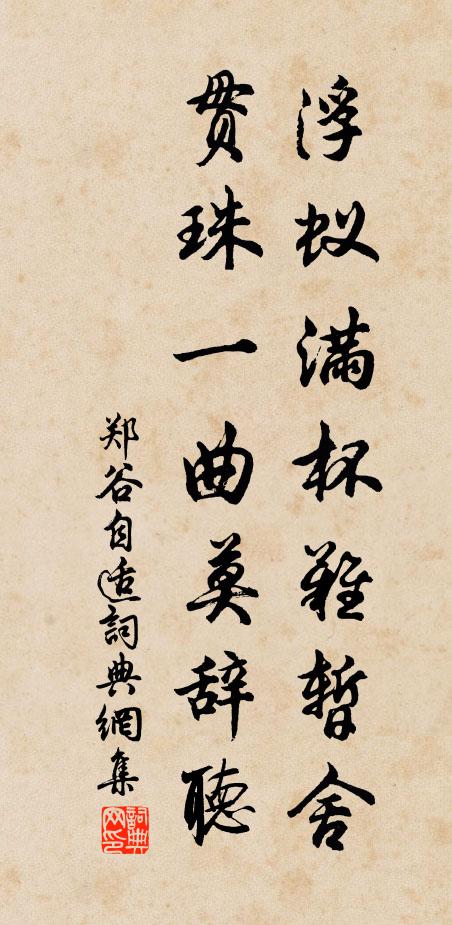 浮蚁满杯难暂舍
贯珠一曲莫辞聽
郑谷自适詞典網集
詞典网印